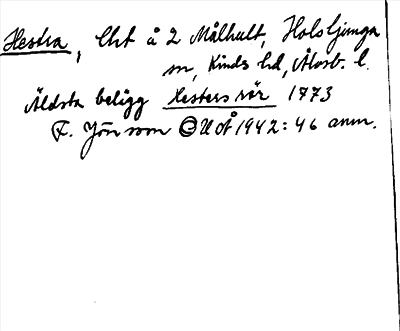 Hestra, Lht å 2 Målhult, Holsljunga
sn, Kinds hd, Älvsb. l.
Äldsta belägg Hesters rör 1773
F. Jönsson OUÅ 1942:46 anm.